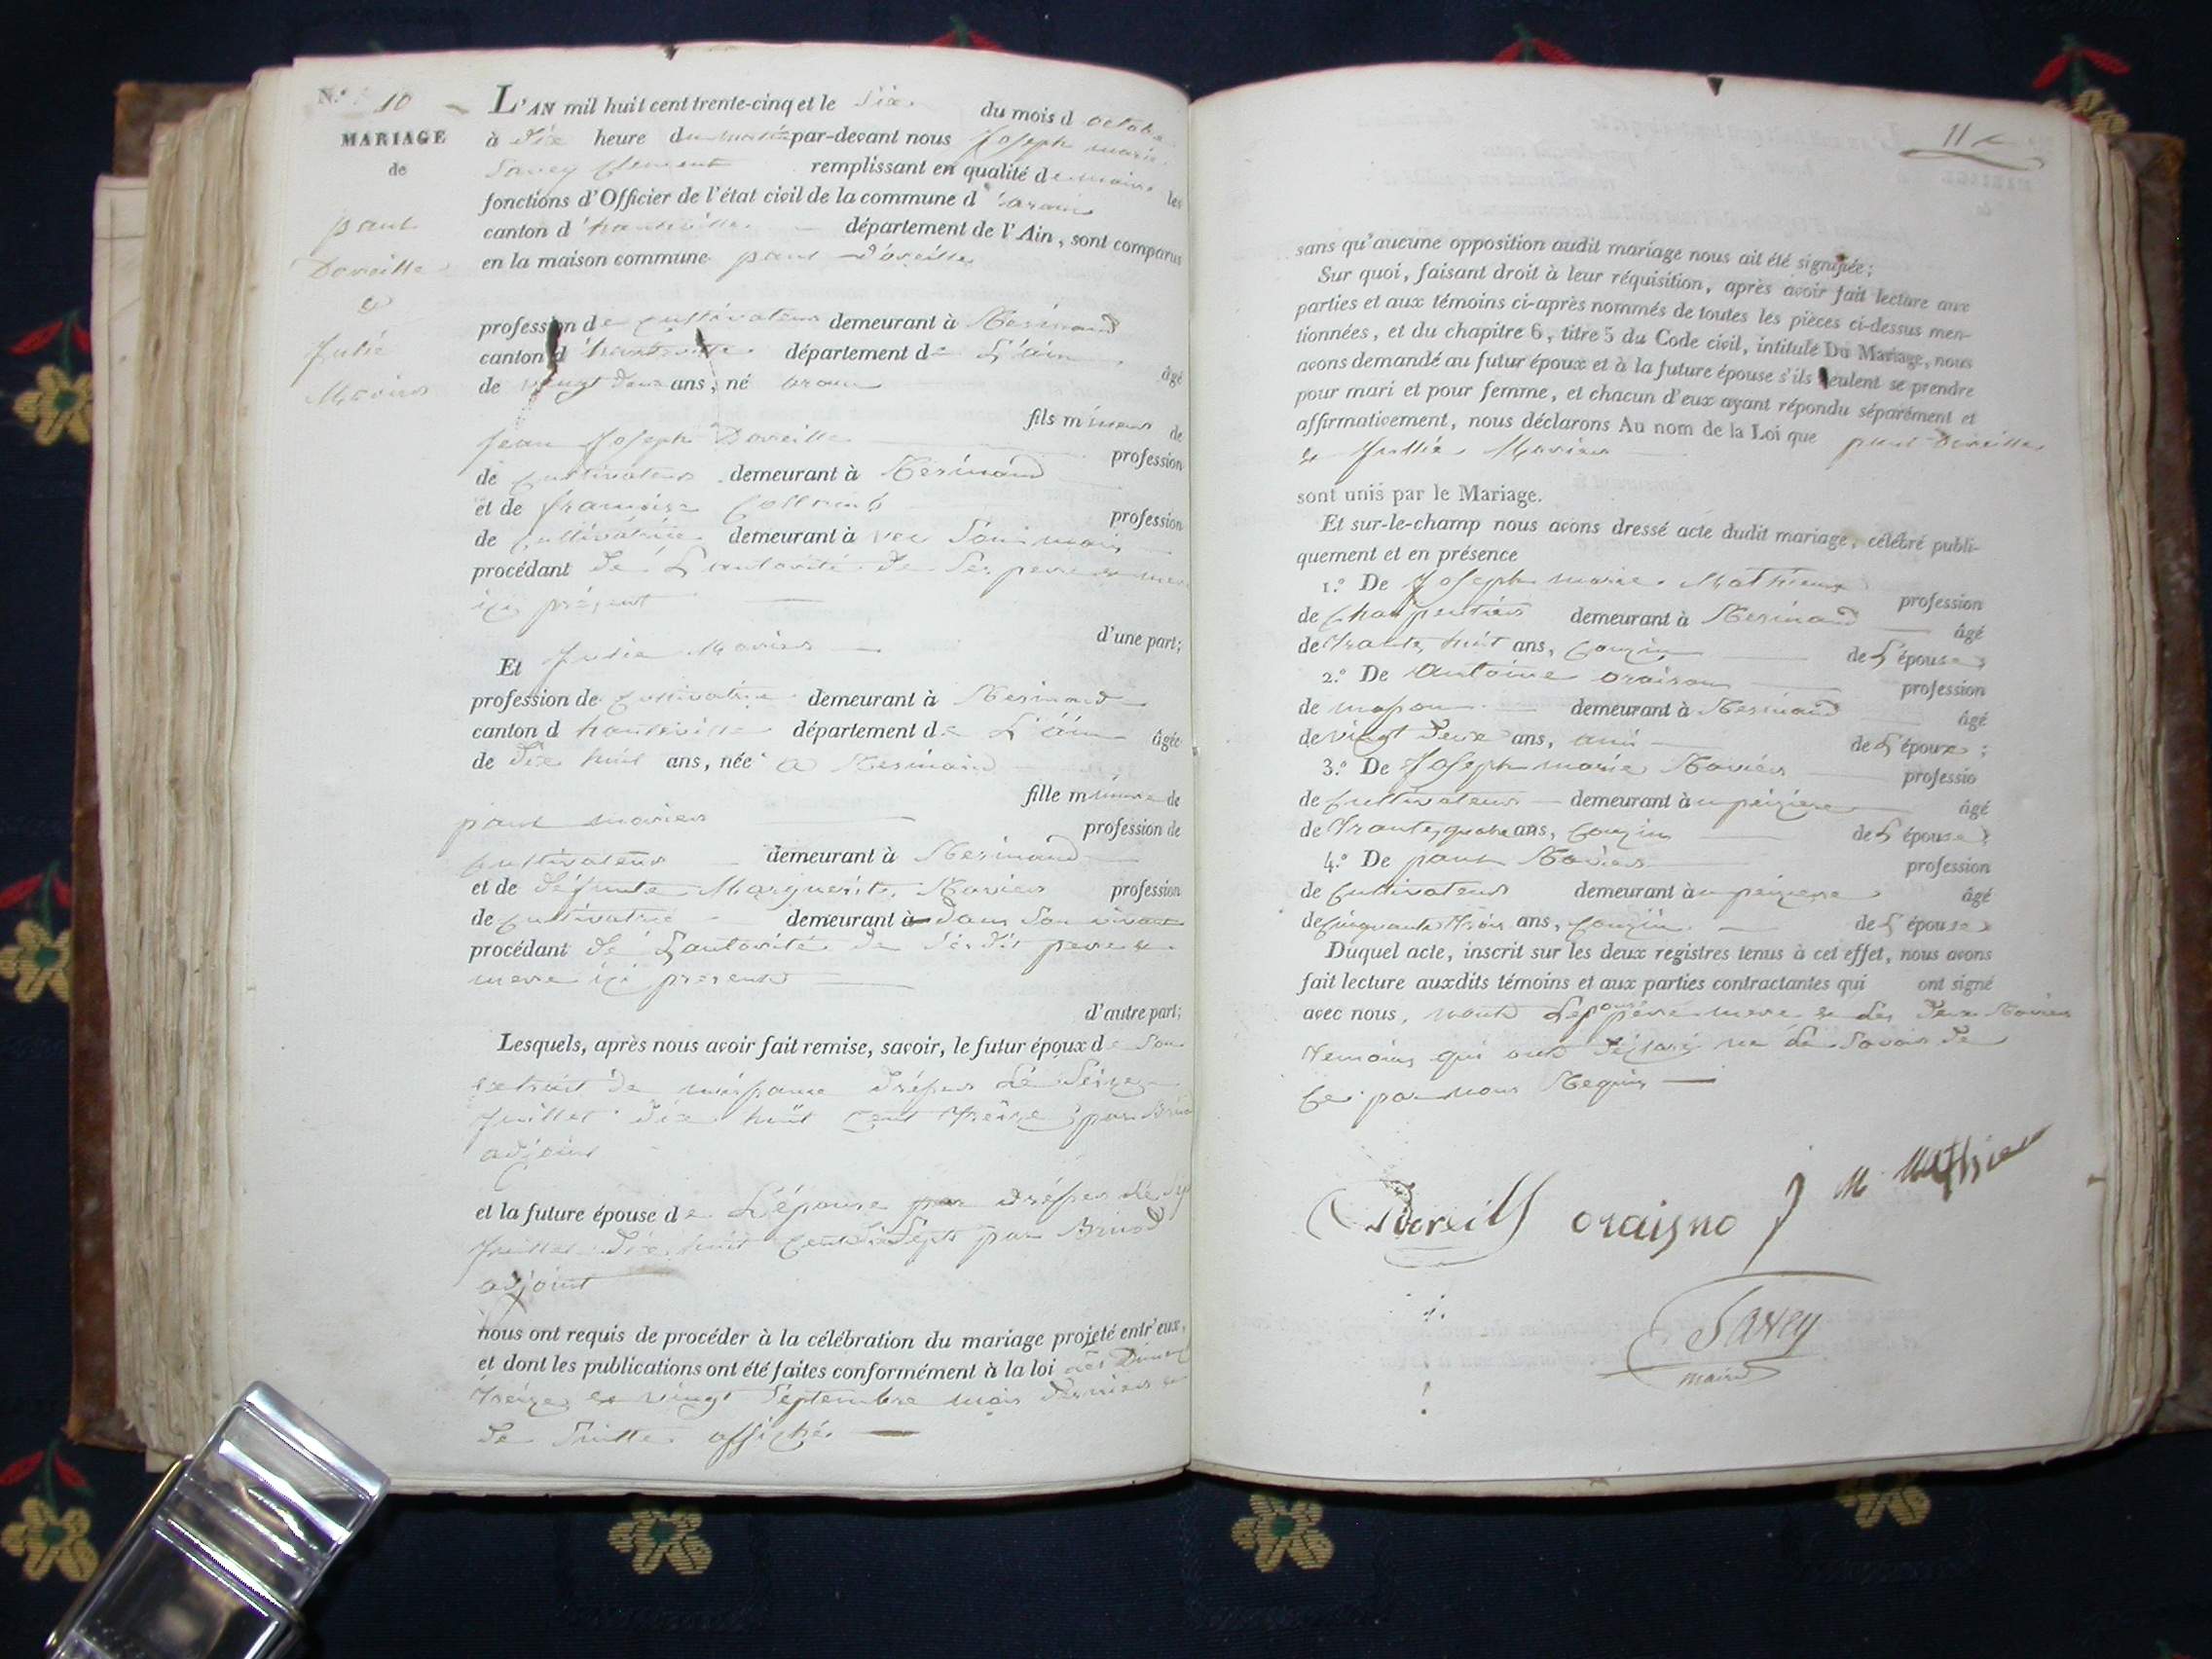 N.° 10
MARIAGE
de
paul
Doreille
&
Julie
L'AN mil huit cent trente-cinq et le six du mois d octobre
à dix heure du matin par-devant nous Joseph marie
Savey Clement remplissant en qualité de maire les
fonctions d'Officier de l'état civil de la commune d'
canton d'hauteville département de l'Ain, sont comparus
en la maison commune paul Doreille
profession de cultivateur demeurant à
canton d'hauteville département de L'ain âgé
de vingt deux ans, né
fils mineur de
Jean Joseph Doreille profession
de cultivateur demeurant à
et de françoise profession
de cultivatrice demeurant à
procédant de L'autorité de ses pere & mere
ici présent
d'une part;
Et Julie
profession de cultivatrice demeurant à
canton d hauteville département de L'ain âgée
de dix huit ans, née a
fille mineure de
paul profession de
cultivateur demeurant à
et de défunte Marguerite profession
de cultivatrice demeurant à dans son vivant
procédant de L'autorité de sesdit pere &
mere ici present
d'autre part;
Lesquels, après nous avoir fait remise, savoir, le futur époux de son
extrait de naissance drésser le seize
Juillet dix huit cent treize par
adjoint
et la future épouse de L'épouse par drésser le
Juillet dix huit cent dix sept par
adjoint
nous ont requis de procéder à la célébration du mariage projeté entr'eux,
et dont les publications ont été faites conformément à la loi
treize et vingt septembre mois dernier &
de suitte affiché
11
sans qu'aucune opposition audit mariage nous ait été signifiée;
Sur quoi, faisant droit à leur réquisition, après avoir fait lecture aux
parties et aux témoins ci-après nommés de toutes les pièces ci-dessus men-
tionnées, et du chapitre 6, titre 5 du Code civil, intitulé Du Mariage, nous
avons demandé au futur époux et à la future épouse s'ils veulent se prendre
pour mari et pour femme, et chacun d'eux ayant répondu séparément et
affirmativement, nous déclarons Au nom de la Loi que paul Doreille
& Jullie
sont unis par le Mariage.
Et sur-le-champ nous avons dressé acte dudit mariage, célébré publi-
quement et en présence
1.° De Joseph marie Mathieux profession
de Charpentier demeurant à âgé
de trante huit ans, couzin de L'épouse;
2.° De Antoine oraison profession
de masson demeurant à âgé
de vingt deux ans, ami de L'époux;
3.° De Joseph marie profession
de cultivateur demeurant à âgé
de trante quatre ans, couzin de L'épouse;
4.° De paul profession
de cultivateur demeurant à âgé
de cinquante trois ans, couzin de L'épouse
Duquel acte, inscrit sur les deux registres tenus à cet effet, nous avons
fait lecture auxdits témoins et aux parties contractantes qui ont signé
avec nous, mere & les deux
temoins qui ont déclaré ne le savoir de
ce par nous Requis
Doreill oraisno J M Mathieu
Savey
maire